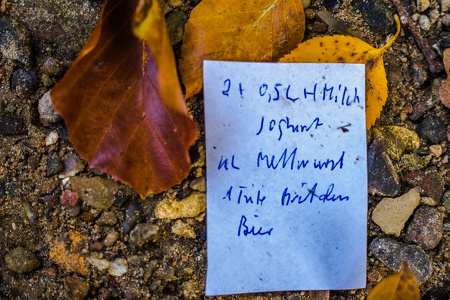 2+ 0,5L H Milch
Joghurt
kl Mettwurst
1 Tüte
Bier